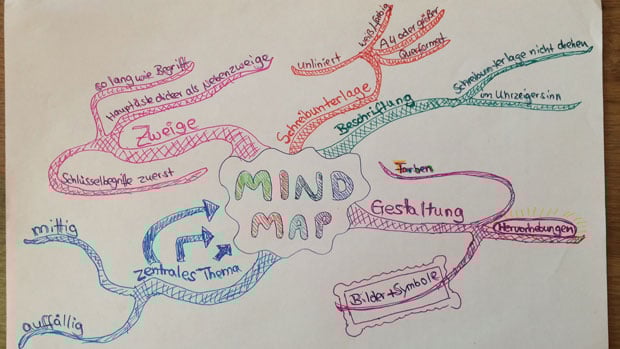 MIND
MAP
Schreibunterlage
unliniert
weiß/farbig
A4 oder größer
Querformat
Beschriftung
Schreibunterlage nicht drehen
im Uhrzeigersinn
Gestaltung
Farben
Hervorhebungen
Bilder + Symbole
zentrales Thema
auffällig
mittig
Zweige
Schlüsselbegriffe zuerst
so lang wie Begriff
Hauptäste dicker als Nebenzweige